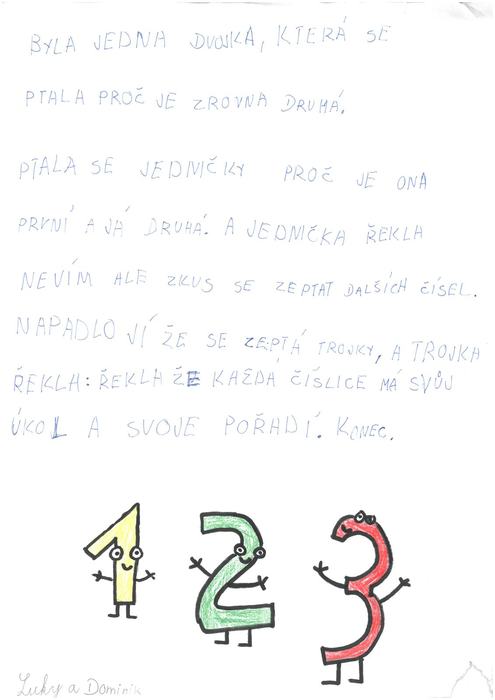 BYLA JEDNA DVOJKA, KTERÁ SE
PTALA PROČ JE ZROVNA DRUHÁ.
PTALA SE JEDNIČKY PROČ JE ONA
PRVNÍ A JÁ DRUHÁ. A JEDNIČKA ŘEKLA
NEVÍM ALE ZKUS SE ZEPTAT DALŠÍCH ČÍSEL.
NAPADLO JÍ ŽE SE ZEPTÁ TROJKY, A TROJKA
ŘEKLA: ŘEKLA ŽE KAŽDÁ ČÍSLICE MÁ SVŮJ
ÚKOL A SVOJE POŘADÍ. KONEC.
1 2 3
Luky a Dominik